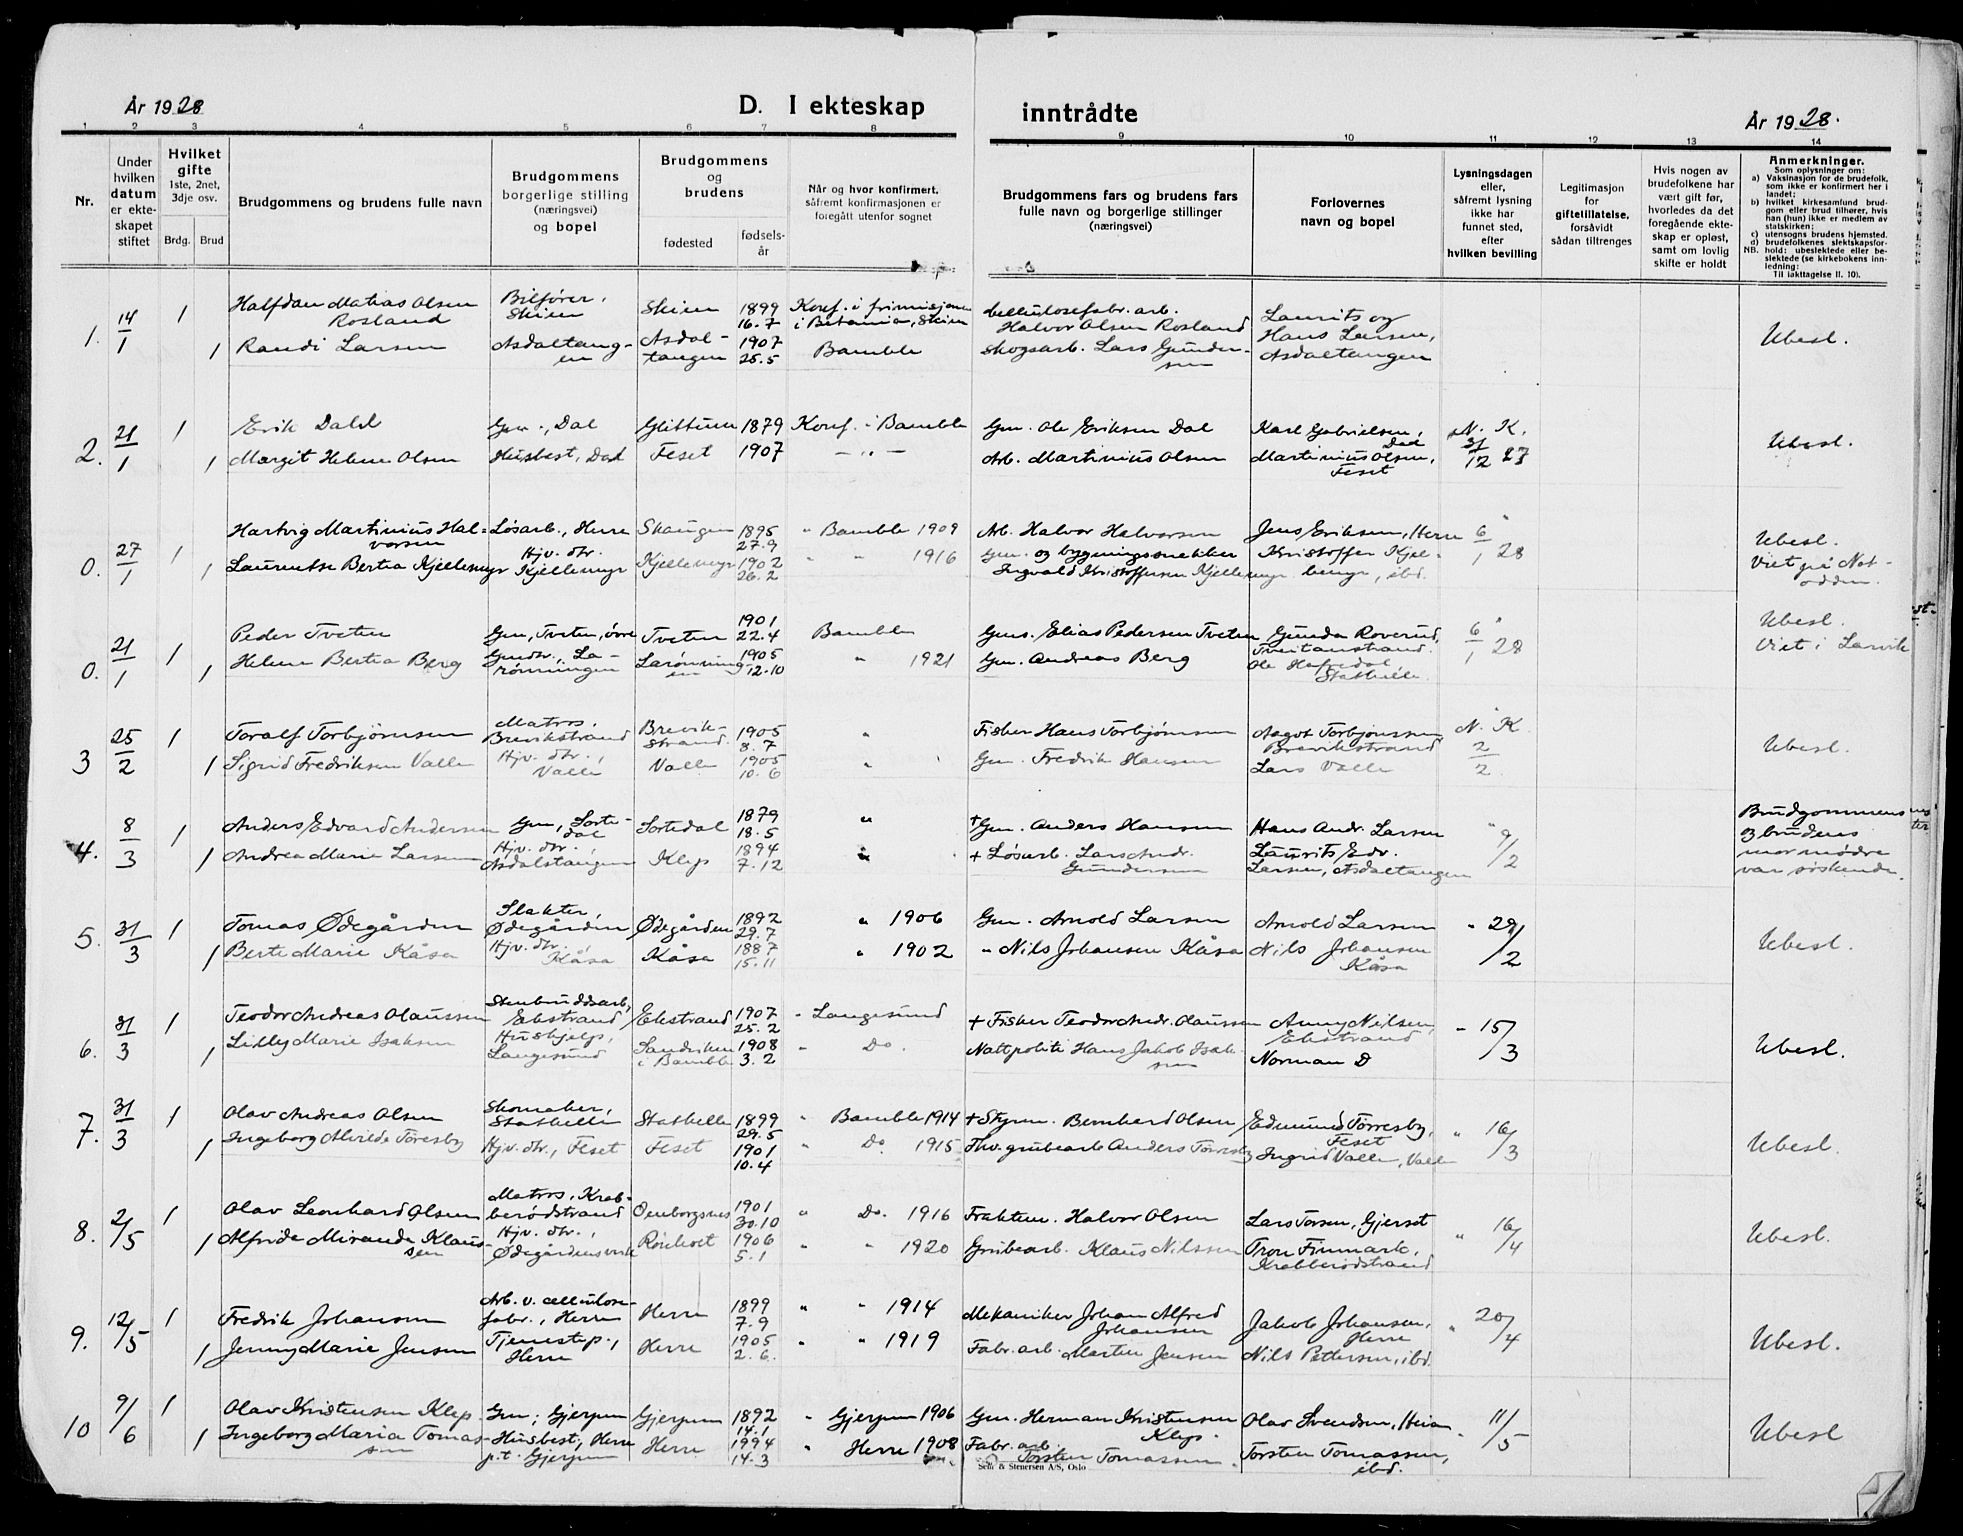 År 1928
D. I ekteskap
inntrådte
År 1928.
1 2 3 4 5 6 7 8 9 10 11 12 13 14
Nr.
Under hvilken datum er ekteskapet stiftet
Hvilket gifte 1ste, 2net, 3dje osv.
Brdg. Brud
Brudgommens og brudens fulle navn
Brudgommens borgerlige stilling (næringsvei) og bopel
Brudgommens og brudens
fødested
fødsels-år
Når og hvor konfirmert, såfremt konfirmasjonen er foregått utenfor sognet
Brudgommens fars og brudens fars fulle navn og borgerlige stillinger (næringsvei)
Forlovernes navn og bopel
Lysningsdagen eller, såfremt lysning ikke har funnet sted, efter hvilken bevilling
Legitimasjon for giftetillatelse, forsåvidt sådan tiltrenges
Hvis nogen av brudefolkene har vært gift før, hvorledes da det foregående ekteskap er opløst, samt om lovlig skifte er holdt
Anmerkninger.
Som oplysninger om:
a) Vaksinasjon for de brudefolk, som ikke er konfirmert her i landet;
b) hvilket kirkesamfund brudgom eller brud tilhører, hvis han (hun) ikke er medlem av statskirken;
c) utensogns brudens hjemsted.
d) brudefolkenes slektskapsforhold: ubeslektede eller beslektede (se kirkebokens innledning:
NB. Til iakttagelse II. 10).
1. 14/1 1 Halfdan Matias Olsen Rosland Bilfører, Skien Skien 1899 16.7 Konf. i frimisjonen i Betania, Skien Cellulosefabr. arb. Halvor Olsen Rosland Laurits og Hans Larsen, Asdaltangen Ubesl.
1 Randi Larsen Asdaltangen Asdaltangen 1907 25.5 Bamble Skogsarb. Lars Gundersen
2. 21/1 1 Erik Dahl Gm., Dal Glittum 1879 Konf. i Bamble Gm. Ole Eriksen Dal Karl Gabrielsen, Dal N. K. 31/12 27 Ubesl.
1 Margit Helene Olsen Husbest., Dal Feset 1907 — „ — Arb. Martinius Olsen Martinius Olsen, Feset
0. 27/1 1 Hartvig Martinius Halvorsen Løsarb., Herre Skaugen 1895 27.9 " Bamble 1909 Arb. Halvor Halvorsen Jens Eriksen, Herre 6/1 28 Ubesl. Viet på Notodden.
1 Laurentse Bertea Kjellemyr Hjv. dtr. Kjellemyr Kjellemyr 1902 26.2 " " 1916 Gm. og bygningssnekker Ingvald Kristoffersen Kjellemyr Kristoffer Kjellemyr, ibd.
0. 21/1 1 Peder Tveten Gm, Tveten, øvre Tveten 1901 22.4 Bamble Gm. Elias Pedersen Tveten Gunda Roverud, Tveitanstrand. 6/1 28 Ubesl. Viet i Larvik
1 Helene Bertea Berg Gmdtr., Larønningen Larønningen 1905 12.10 " 1921 Gm. Andreas Berg Ole Hafredal, Stathelle.
3 25/2 1 Toralf Torbjørnsen Matros, Brevikstrand Brevikstrand 1905 8.7 " Fisker Hans Torbjørnsen Aagot Torbjørnsen Brevikstrand N. K 2/2 Ubesl.
1 Sigrid Fredriksen Valle Hjv. dtr., Valle Valle 1905 10.6 " Gm. Fredrik Hansen Lars Valle
4. 8/3 1 Anders Edvard Andersen Gm, Sortedal Sortedal 1879 18.5 " + Gm. Anders Hansen Hans Andr. Larsen " 9/2 Brudgommens og brudens mormødre var søskende.
1 Andrea Marie Larsen Hjv. dtr., Asdalstangen Klep 1894 7.12 " + Løsarb. Lars Andr. Gundersen Laurits Edv. Larsen, Asdaltangen
5. 31/3 1 Tomas Ødegården Slakter, Ødegården Ødegården 1892 29.7 " 1906 Gm. Arnold Larsen Arnold Larsen " 29/2 Ubesl.
1 Berte Marie Kåsa Hjv. dtr., Kåsa Kåsa 1887 15.11 " 1902 " Nils Johansen Kåsa Nils Johansen Kåsa
6. 31/3 1 Teodor Andreas Olaussen Stenbruddsarb, Ekstrand Ekstrand 1907 25.2 " Langesund + Fisker Teodor Andr. Olaussen Anny Nilsen, Ekstrand " 15/3 Ubesl.
1 Lilly Marie Isaksen Hushjelp, Langesund Sandviken i Bamble 1908 3.2 " Do. Nattpoliti Hans Jakob Isaksen Norman D
7. 31/3 1 Olav Andreas Olsen Skomaker, Stathelle Stathelle 1899 29.5 " Bamble 1914 + Styrm. Bernhard Olsen Edmund Torresby, Feset " 16/3 Ubesl.
1 Ingeborg Alvilde Toresby Hjv. dtr., Feset Feset 1901 10.4 " Do. 1915 Fhv. grubearb Anders Torresby Ingrid Valle, Valle
8. 2/5 1 Olav Leonhard Olsen Matros, Krabberødstrand 1901 30.10 " Do. 1916 Fraktem. Halvor Olsen Lars Torsen, Gjerset " 16/4 Ubesl.
1 Alfride Mirande Klaussen Hjv. dtr., Ødegårdens verk Rønholt 1906 5.1 " " 1920 Grubearb. Klaus Nilssen Tron Finmark, Krabberødstrand
9. 12/5 1 Fredrik Johansen Arb. v. cellulosefabr., Herre Herre 1899 7.9 " " 1914 Mekaniker Johan Alfred Johansen Jakob Johansen, Herre " 20/4 Ubesl.
1 Jenny Marie Jensen Tjenestep., Herre Herre 1905 2.6. " " 1919 Fabr. arb. Marten Jensen Nils Pettersen, ibd.
10 9/6 1 Olav Kristensen Klep Gm; Gjerpen Gjerpen 1892 14.1 " Gjerpen 1906 Gm. Herman Kristensen Klep. Olav Svendsen, Heia " 11/5 Ubesl
1 Ingeborg Maria Tomassen Husbest, Herre p.t. Gjerpen Herre 1994 14.3 " Herre 1908 Fabr. arb. Torsten Tomassen. Torsten Tomassen, ibd.
Sem & Stenersen A/S, Oslo